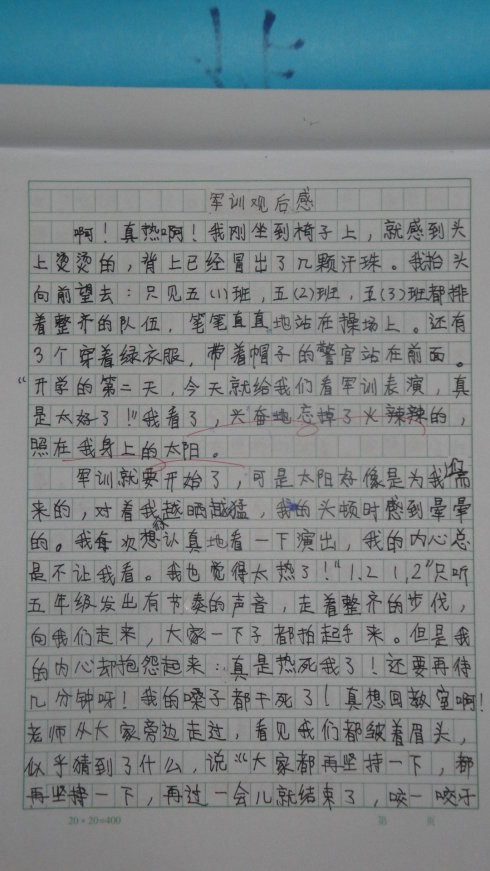 军训观后感
啊！真热啊！我刚坐到椅子上，就感到头
上烫烫的，背上已经冒出了几颗汗珠。我抬头
向前望去：只见五(1)班，五(2)班，五(3)班都排
着整齐的队伍，笔笔直直地站在操场上。还有
3个穿着绿衣服，带着帽子的警官站在前面。
“开学的第二天，今天就给我们看军训表演，真
是太好了！”我看了，兴奋地忘掉了火辣辣的，
照在我身上的太阳。
军训就要开始了，可是太阳好像是为我们而
来的，对着我越晒越猛，我的头顿时感到晕晕
的。我每次想认真地看一下演出，我的内心总
是不让我看。我也觉得太热了！“1.2 1,2”只听
五年级发出有节奏的声音，走着整齐的步伐，
向我们走来，大家一下子都拍起手来。但是我
的内心却抱怨起来：真是热死我了！还要再待
几分钟呀！我的嗓子都干死了！真想回教室啊！
老师从大家旁边走过，看见我们都皱着眉头，
似乎猜到了什么，说“大家都再坚持一下，都
再坚持一下，再过一会儿就结束了，咬一咬牙
20×20=400
第 页